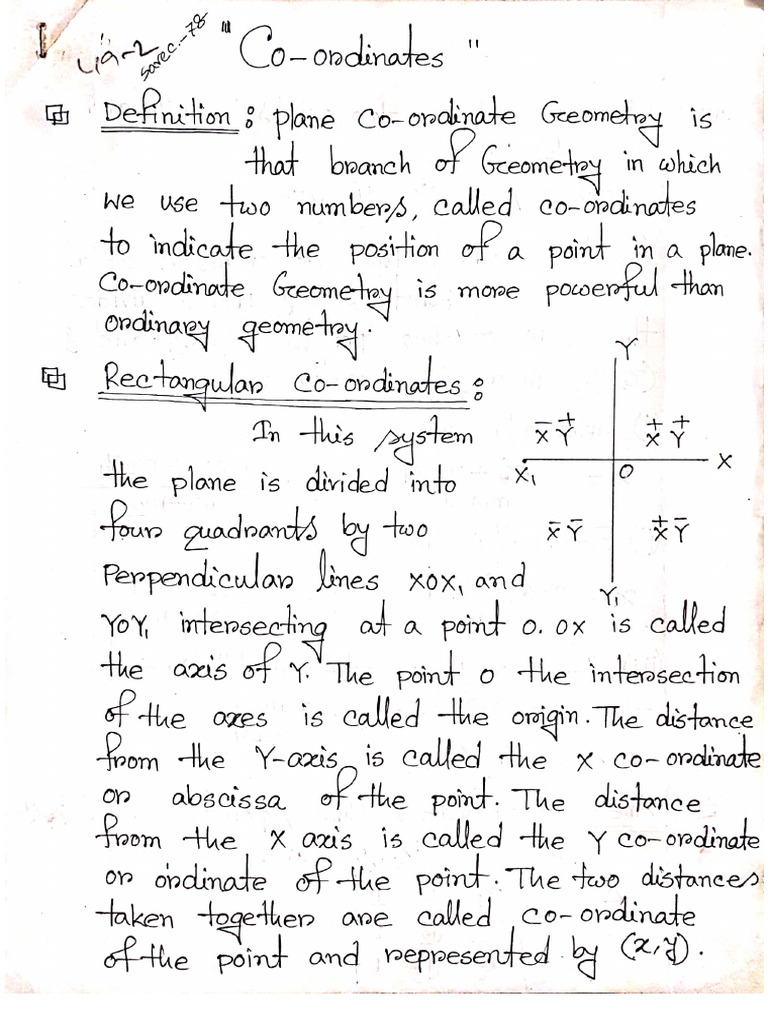 "Co-ordinates"
Definition: plane Co-ordinate Geometry is
that branch of Geometry in which
we use two numbers, called co-ordinates
to indicate the position of a point in a plane.
Co-ordinate Geometry is more powerful than
ordinary geometry.
Rectangular Co-ordinates:
In this system
the plane is divided into
four quadrants by two
Perpendicular lines XOX₁ and
YOY₁ intersecting at a point O. OX is called
the axis of Y. The point O the intersection
of the axes is called the origin. The distance
from the Y-axis is called the X co-ordinate
or abscissa of the point. The distance
from the X axis is called the Y co-ordinate
or ordinate of the point. The two distances
taken together are called co-ordinate
of the point and represented by (x,y).
Y
X̄ Y⁺
X⁺ Y⁺
X₁
O
X
X̄ Ȳ
X⁺ Ȳ
Y₁